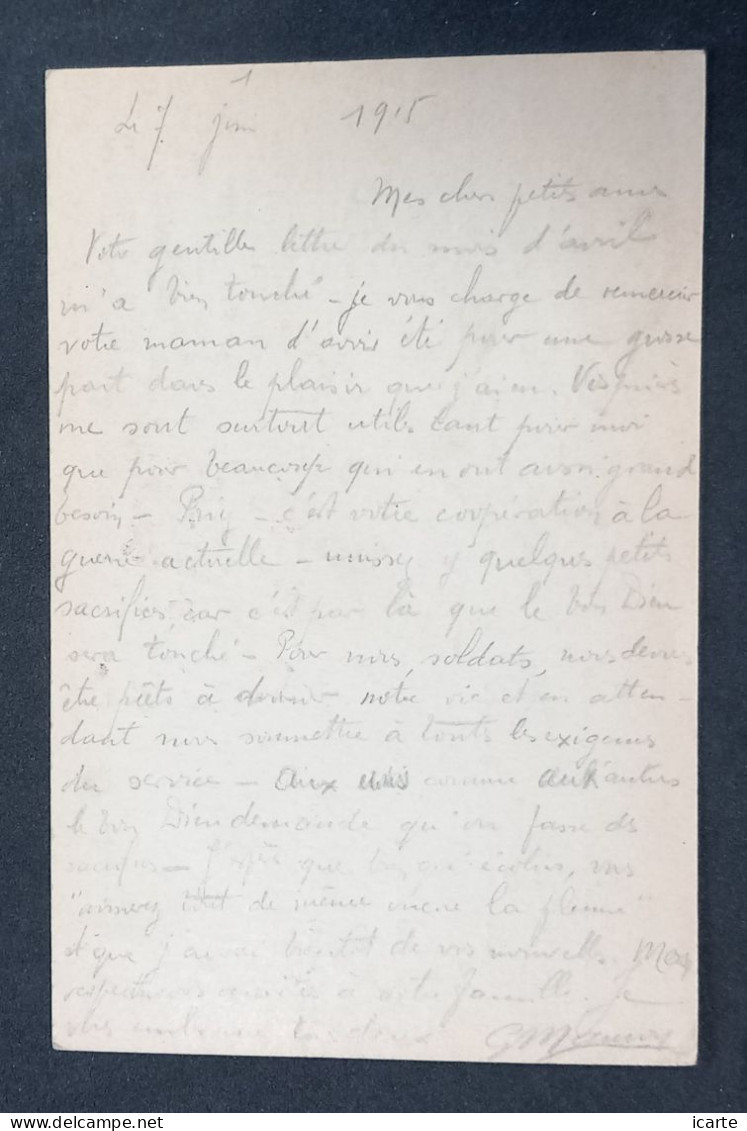 Le 7 juin 1915
Mes chers petits amis
Votre gentille lettre du mois d'avril
m'a bien touché - je vous charge de remercier
votre maman d'avoir été pour une grosse
part dans le plaisir que j'ai eu. Vos prières
me sont surtout utiles tant pour moi
que pour beaucoup qui en ont aussi grand
besoin - Priez - c'est votre coopération à la
guerre actuelle - unissez y quelques petits
sacrifices, car c'est par là que le bon Dieu
sera touché - Pour nous, soldats, nous devons
être prêts à donner notre vie et en atten-
dant nous soumettre à toutes les exigences
du service - Aux uns comme aux autres
le bon Dieu demande qu'on fasse des
- J'espère que bien qu'écoliers, vous
"aimerez de même encore la plume"
et que j'aurai bientôt de vos nouvelles. Mes
respectueuses à votre famille. Je
vous embrasse tous deux
icarte